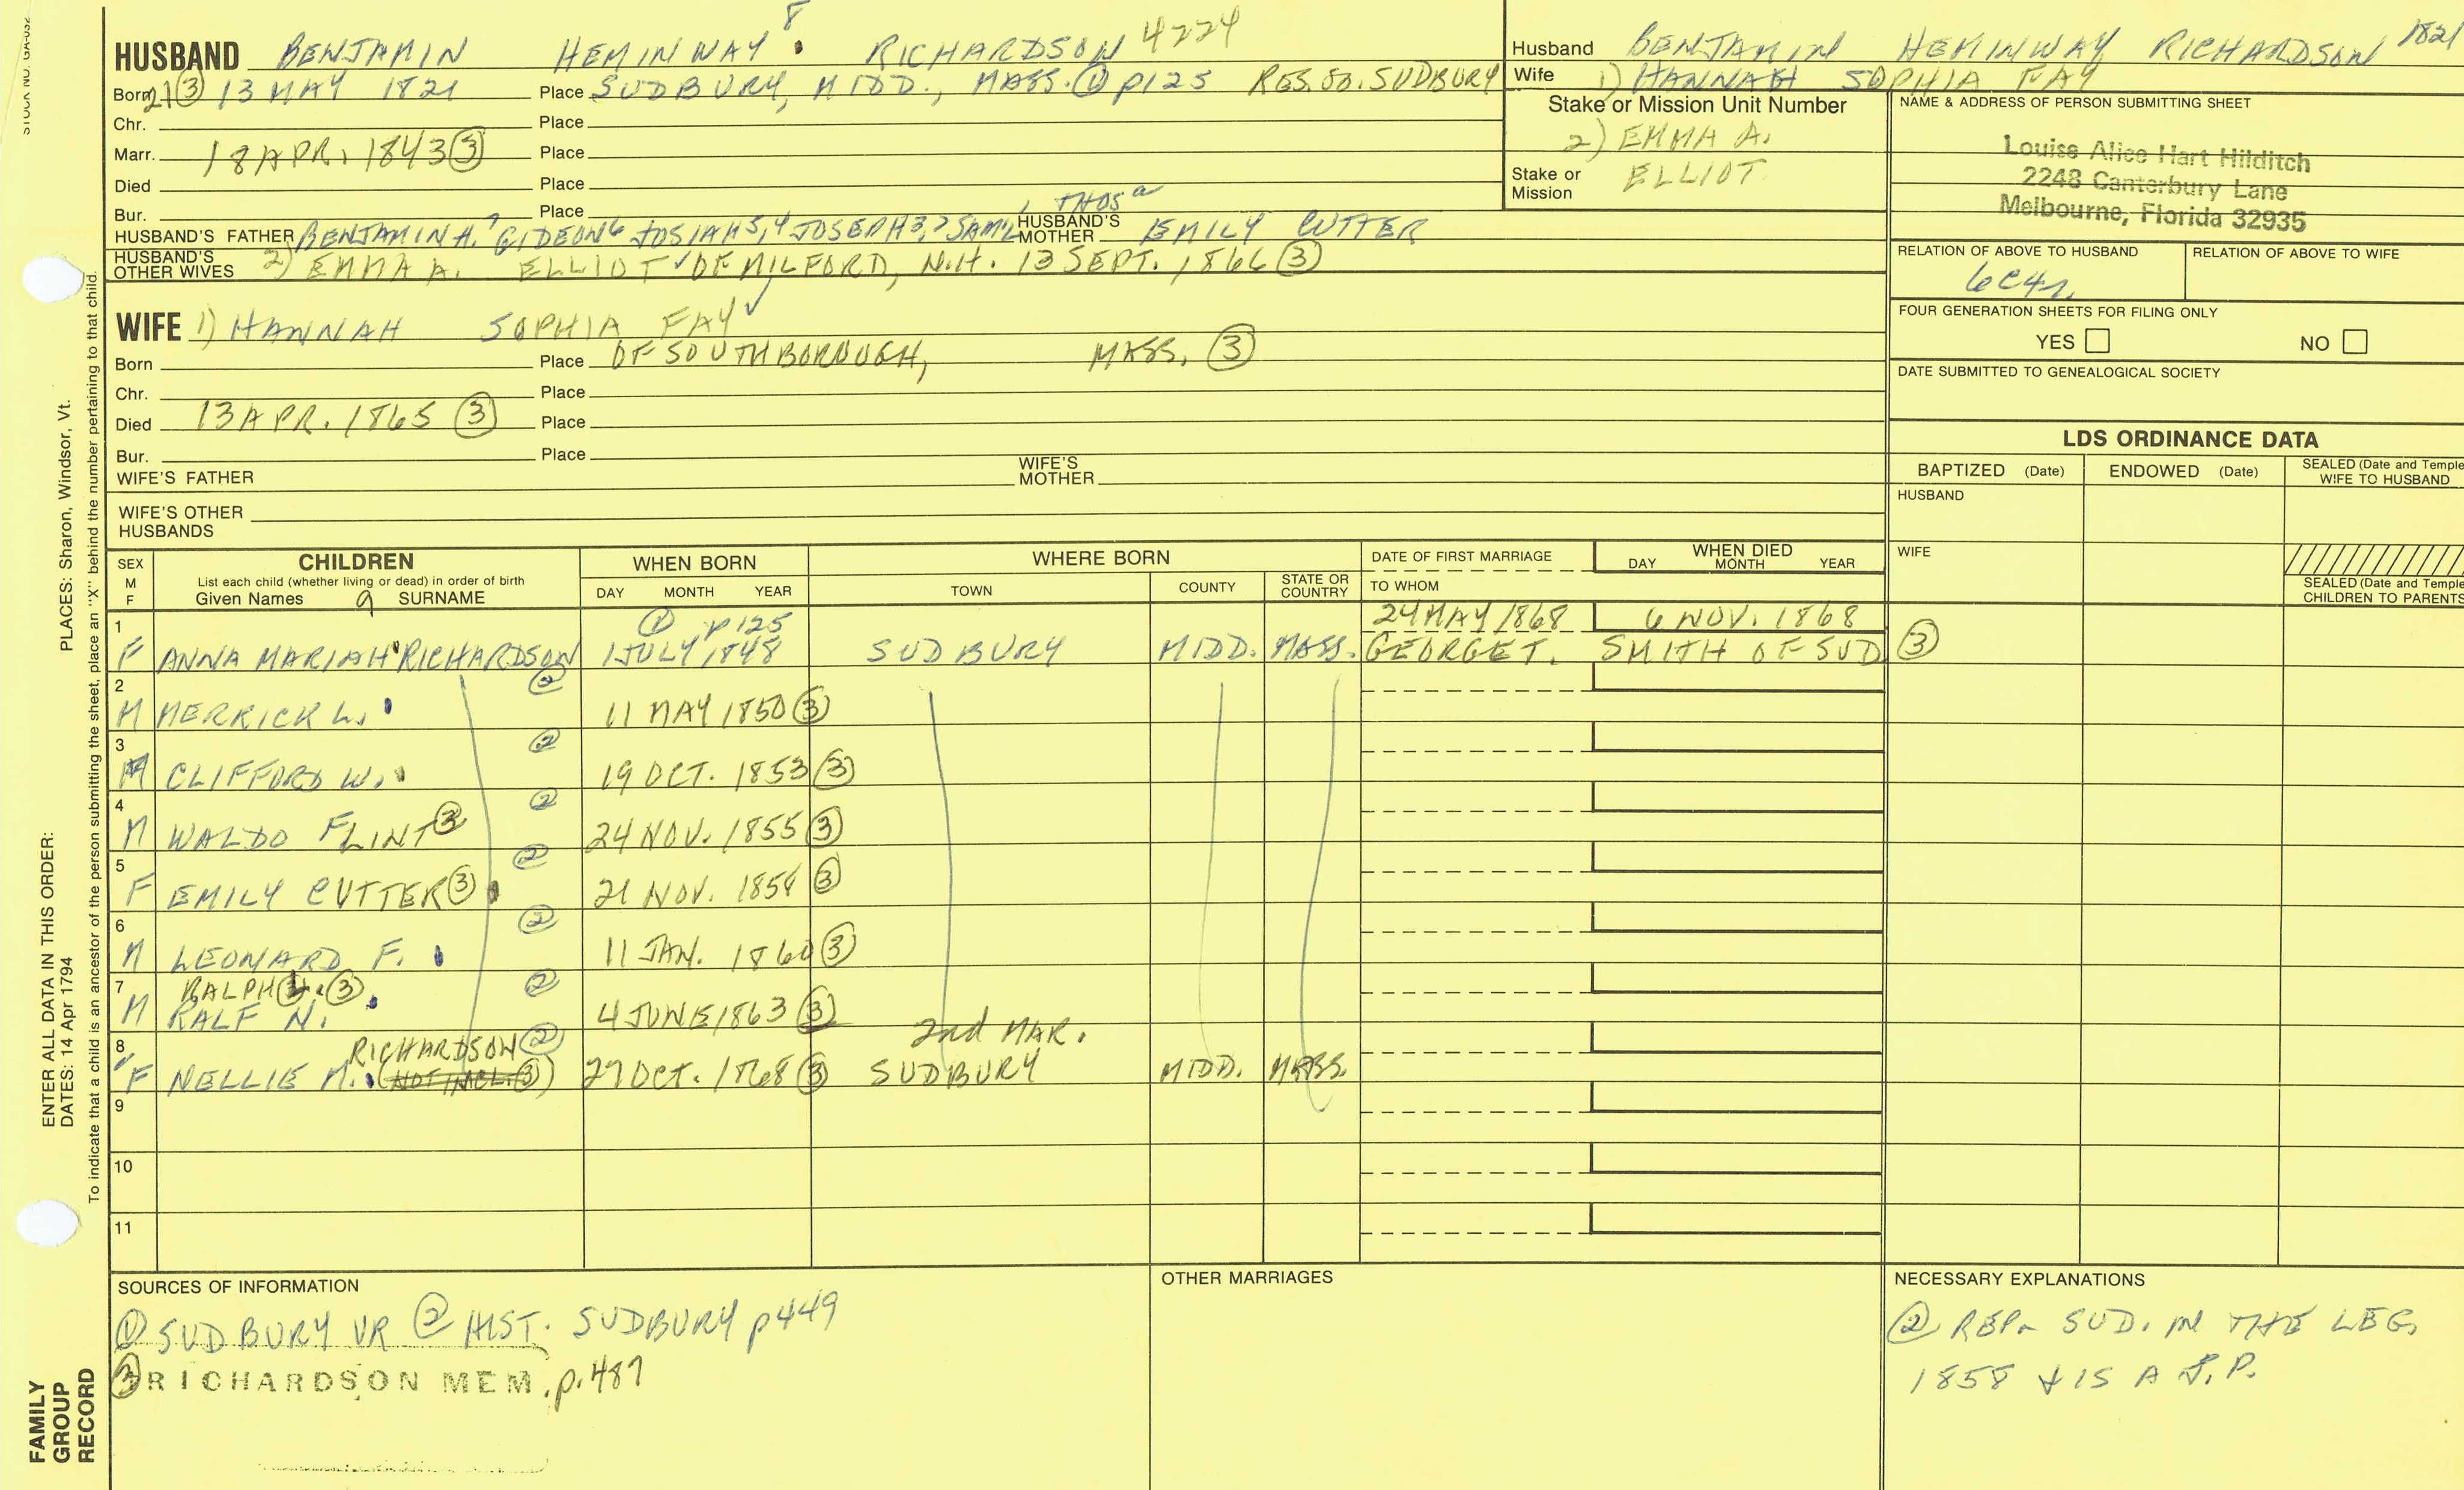 STOCK NO. GA-032
8
HUSBAND BENJAMIN HEMINWAY RICHARDSON 4224
Born 21 ③ 13 MAY 1821 Place SUDBURY, MIDD., MASS. ① p125 RES. SO. SUDBURY
Chr. Place
Marr. 18 APR. 1843 ③ Place
Died Place
Bur. Place
, THOS a
HUSBAND'S FATHER BENJAMIN H. 7 GIDEON 6 JOSIAH 5,4 JOSEPH 3,2 SAM'L HUSBAND'S MOTHER EMILY CUTTER
HUSBAND'S OTHER WIVES 2) EMMA A. ELLIOT ✓ OF MILFORD, N.H. 13 SEPT. 1866 ③
WIFE 1) HANNAH SOPHIA FAY ✓
Born Place OF SOUTHBOROUGH, MASS. ③
Chr. Place
Died 13 APR. 1865 ③ Place
Bur. Place
WIFE'S FATHER WIFE'S MOTHER
WIFE'S OTHER HUSBANDS
Husband BENJAMIN HEMINWAY RICHARDSON 1821
Wife 1) HANNAH SOPHIA FAY
Stake or Mission Unit Number
2) EMMA A.
Stake or Mission ELLIOT
NAME & ADDRESS OF PERSON SUBMITTING SHEET
Louise Alice Hart Hilditch
2248 Canterbury Lane
Melbourne, Florida 32935
RELATION OF ABOVE TO HUSBAND RELATION OF ABOVE TO WIFE
6C4r
FOUR GENERATION SHEETS FOR FILING ONLY
YES NO
DATE SUBMITTED TO GENEALOGICAL SOCIETY
LDS ORDINANCE DATA
BAPTIZED (Date) ENDOWED (Date) SEALED (Date and Temple
WIFE TO HUSBAND
HUSBAND
WIFE
SEALED (Date and Temple
CHILDREN TO PARENTS
SEX M F CHILDREN WHEN BORN WHERE BORN DATE OF FIRST MARRIAGE WHEN DIED
List each child (whether living or dead) in order of birth
Given Names 9 SURNAME DAY MONTH YEAR TOWN COUNTY STATE OR COUNTRY TO WHOM DAY MONTH YEAR
① p125 24 MAY 1868 6 NOV. 1868
1 F ANNA MARIAH RICHARDSON 1 JULY 1848 SUDBURY MIDD. MASS. GEORGE T. SMITH OF SUD ③
2 M MERRICK L. ② 11 MAY 1850 ③
3 M CLIFFORD W. ② 19 OCT. 1853 ③
4 M WALDO FLINT ③ ② 24 NOV. 1855 ③
5 F EMILY CUTTER ③ ② 21 NOV. 1858 ③
6 M LEONARD F. ② 11 JAN. 1860 ③
7 RALPH L. ③ ②
M RALF N. 4 JUNE 1863 ③
8 RICHARDSON ② 2nd MAR.
F NELLIE M. (NOT INCL. ③) 27 OCT. 1868 ③ SUDBURY MIDD. MASS.
9
10
11
SOURCES OF INFORMATION
① SUDBURY VR ② HIST. SUDBURY p449
③ RICHARDSON MEM. p.487
OTHER MARRIAGES
NECESSARY EXPLANATIONS
② REP. SUD. IN THE LEG.
1858 & IS A J.P.
PLACES: Sharon, Windsor, Vt.
ENTER ALL DATA IN THIS ORDER:
DATES: 14 Apr 1794
To indicate that a child is an ancestor of the person submitting the sheet, place an "X" behind the number pertaining to that child.
FAMILY
GROUP
RECORD